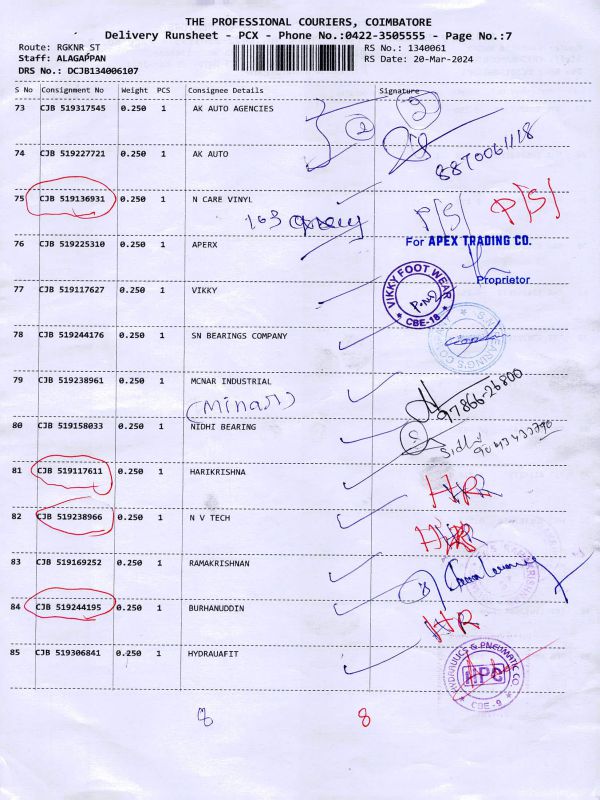 THE PROFESSIONAL COURIERS, COIMBATORE
Delivery Runsheet - PCX - Phone No.:0422-3505555 - Page No.:7
Route: RGKNR ST RS No.: 1340061
Staff: ALAGAPPAN RS Date: 20-Mar-2024
DRS No.: DCJB134006107
S No Consignment No Weight PCS Consignee Details Signature
73 CJB 519317545 0.250 1 AK AUTO AGENCIES
2 2
74 CJB 519227721 0.250 1 AK AUTO
8870061118
75 CJB 519136931 0.250 1 N CARE VINYL P/S1 P/S1
163
76 CJB 519225310 0.250 1 APERX For APEX TRADING CO.
Proprietor
77 CJB 519117627 0.250 1 VIKKY VIKKY FOOT WEAR CBE-18
78 CJB 519244176 0.250 1 SN BEARINGS COMPANY
79 CJB 519238961 0.250 1 MCNAR INDUSTRIAL
(Minar) 97866-26800
80 CJB 519158033 0.250 1 NIDHI BEARING
81 CJB 519117611 0.250 1 HARIKRISHNA HR
82 CJB 519238966 0.250 1 N V TECH HR
83 CJB 519169252 0.250 1 RAMAKRISHNAN
84 CJB 519244195 0.250 1 BURHANUDDIN HR
85 CJB 519306841 0.250 1 HYDRAUAFIT HYDRAULICS & PNEUMATIC CO HPC CBE-9
8 8